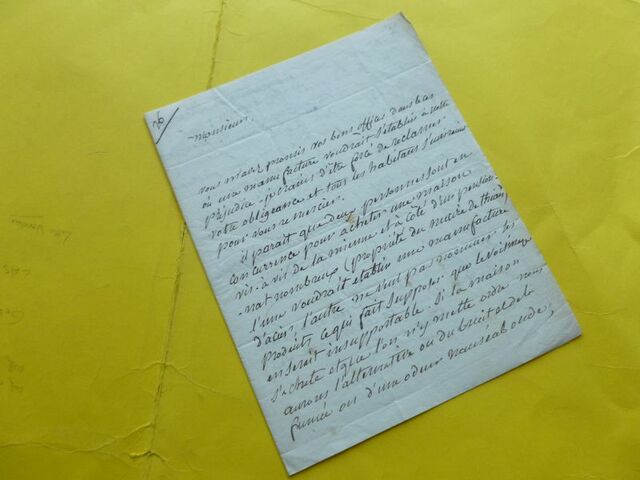 26
Monsieur.
vous m'avez promis vos bons offices dans le cas
où une manufacture voudrait s'établir à notre
préjudice. je crains d'être forcé de réclamer
votre obligeance et tous les habitans s'uniraient
pour vous remercier.
il parait que deux personnes sont en
concurrence pour acheter une maison
vis-à-vis de la mienne et à côté d'un pension-
nat nombreux (propriété du
l'une voudrait établir une manufacture
d'acier, l'autre ne veut pas nommer ses
produits ce qui fait supposer que le voisinage
en serait insupportable. Si la maison
s'achete et que l'on n'y mette ordre nous
aurons l'alternative ou du bruit et de la
fumée ou d'une odeur nauséabonde;